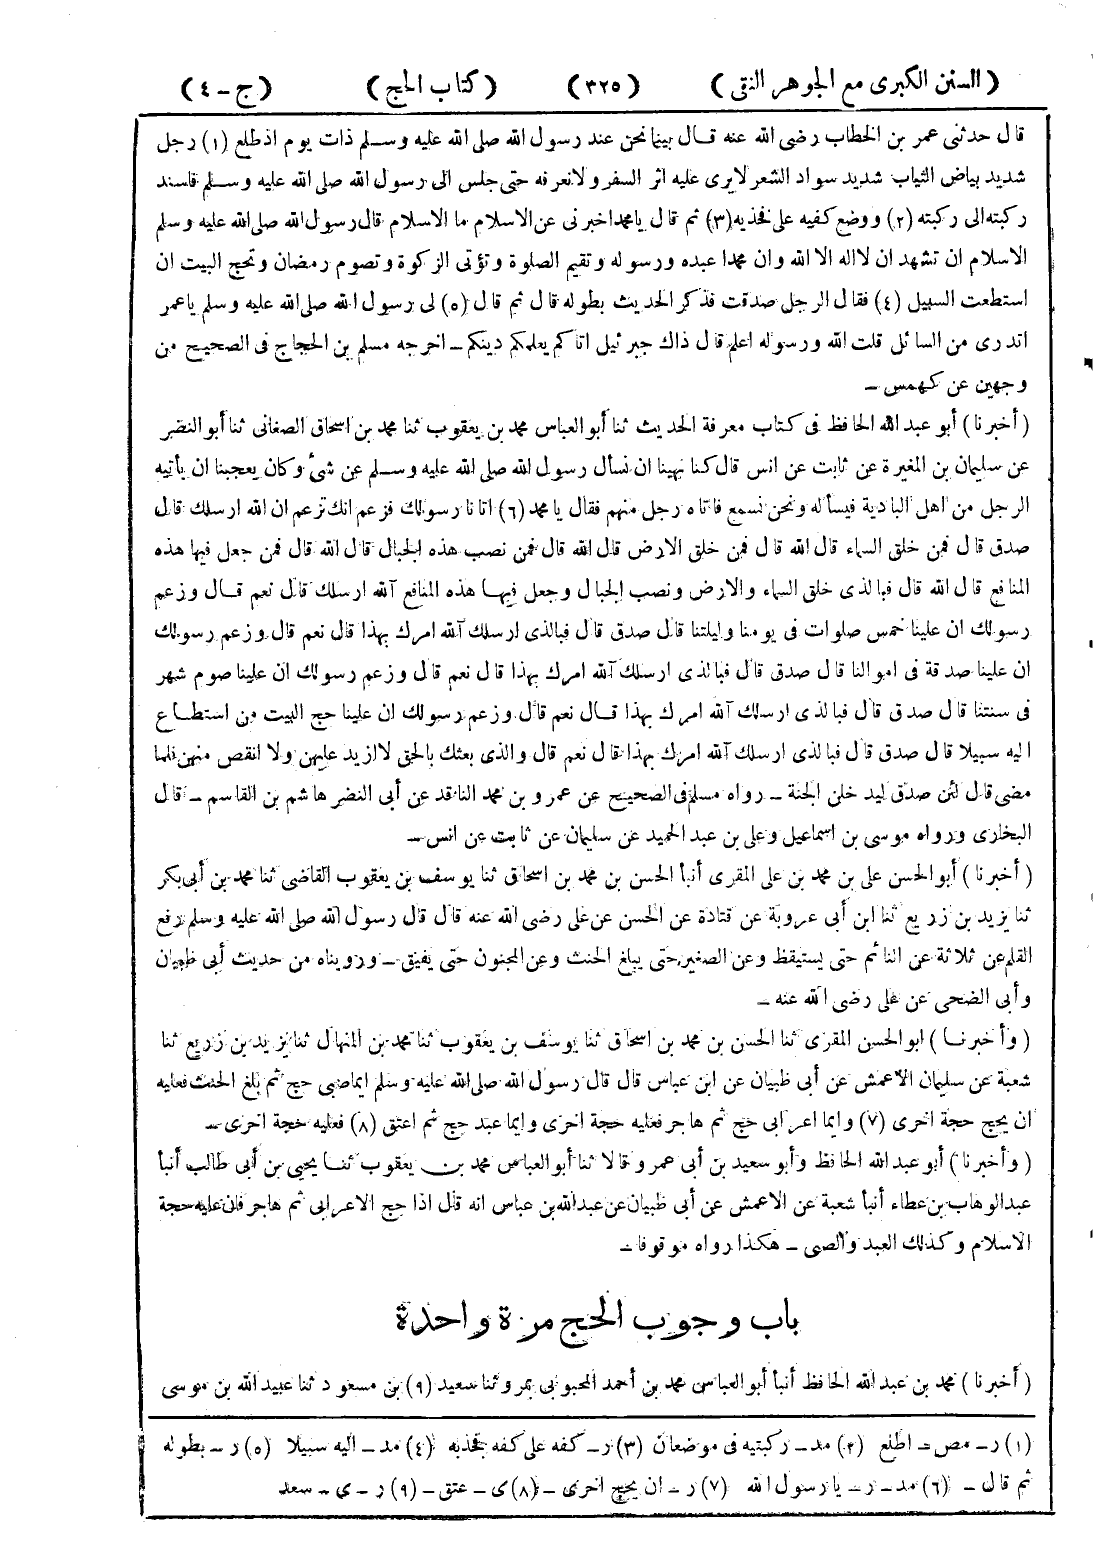 ( السنن الكبرى مع الجوهر النقى ) ( ٣٢٥ ) ( كتاب الحج ) ( ج - ٤ )
قال حدثنى عمر بن الخطاب رضى الله عنه قال بينما نحن عند رسول الله صلى الله عليه وسلم ذات يوم اذ طلع (١) رجل
شديد بياض الثياب شديد سواد الشعر لا يرى عليه اثر السفر ولا نعرفه حتى جلس الى رسول الله صلى الله عليه وسلم فاسند
ركبته الى ركبته (٢) ووضع كفيه على فخذيه (٣) ثم قال يا محمد اخبرنى عن الاسلام ما الاسلام قال رسول الله صلى الله عليه وسلم
الاسلام ان تشهد ان لا اله الا الله وان محمدا عبده ورسوله وتقيم الصلوة وتؤتى الزكوة وتصوم رمضان وتحج البيت ان
استطعت السبيل (٤) فقال الرجل صدقت فذكر الحديث بطوله قال ثم قال (٥) لى رسول الله صلى الله عليه وسلم يا عمر
اتدرى من السائل قلت الله ورسوله اعلم قال ذاك جبرئيل اتاكم يعلمكم دينكم - اخرجه مسلم بن الحجاج فى الصحيح من
وجهين عن كهمس -
( أخبرنا ) أبو عبد الله الحافظ فى كتاب معرفة الحديث ثنا أبو العباس محمد بن يعقوب ثنا محمد بن اسحاق الصغانى ثنا أبو النضر
عن سليمان بن المغيرة عن ثابت عن انس قال كنا نهينا ان نسأل رسول الله صلى الله عليه وسلم عن شئ وكان يعجبنا ان يأتيه
الرجل من اهل البادية فيسأله ونحن نسمع فاتاه رجل منهم فقال يا محمد (٦) اتانا رسولك فزعم انك تزعم ان الله ارسلك قال
صدق قال فمن خلق السماء قال الله قال فمن خلق الارض قال الله قال فمن نصب هذه الجبال قال الله قال فمن جعل فيها هذه
المنافع قال الله قال فبالذى خلق السماء والارض ونصب الجبال وجعل فيها هذه المنافع آلله ارسلك قال نعم قال وزعم
رسولك ان علينا خمس صلوات فى يومنا وليلتنا قال صدق قال فبالذى ارسلك آلله امرك بهذا قال نعم قال وزعم رسولك
ان علينا صدقة فى اموالنا قال صدق قال فبالذى ارسلك آلله امرك بهذا قال نعم قال وزعم رسولك ان علينا صوم شهر
فى سنتنا قال صدق قال فبالذى ارسلك آلله امرك بهذا قال نعم قال وزعم رسولك ان علينا حج البيت من استطاع
اليه سبيلا قال صدق قال فبالذى ارسلك آلله امرك بهذا قال نعم قال والذى بعثك بالحق لا ازيد عليهن ولا انقص منهن فلما
مضى قال لئن صدق ليدخلن الجنة - رواه مسلم فى الصحيح عن عمرو بن محمد الناقد عن أبى النضر هاشم بن القاسم - قال
البخارى ورواه موسى بن اسماعيل وعلى بن عبد الحميد عن سليمان عن ثابت عن انس -
( أخبرنا ) أبو الحسن على بن محمد بن على المقرى أنبأ الحسن بن محمد بن اسحاق ثنا يوسف بن يعقوب القاضى ثنا محمد بن أبى بكر
ثنا يزيد بن زريع ثنا ابن أبى عروبة عن قتادة عن الحسن عن على رضى الله عنه قال قال رسول الله صلى الله عليه وسلم رفع
القلم عن ثلاثة عن النائم حتى يستيقظ وعن الصغير حتى يبلغ الحنث وعن المجنون حتى يفيق - ورويناه من حديث أبى ظبيان
وأبى الضحى عن على رضى الله عنه -
( وأخبرنا ) ابو الحسن المقرى ثنا الحسن بن محمد بن اسحاق ثنا يوسف بن يعقوب ثنا محمد بن المنهال ثنا يزيد بن زريع ثنا
شعبة عن سليمان الاعمش عن أبى ظبيان عن ابن عباس قال قال رسول الله صلى الله عليه وسلم ايما صبى حج ثم بلغ الحنث فعليه
ان يحج حجة اخرى (٧) وايما اعرابى حج ثم هاجر فعليه حجة اخرى وايما عبد حج ثم اعتق (٨) فعليه حجة اخرى -
( وأخبرنا ) أبو عبد الله الحافظ وأبو سعيد بن أبى عمرو قالا ثنا أبو العباس محمد بن يعقوب ثنا يحيى بن أبى طالب أنبأ
عبد الوهاب بن عطاء أنبأ شعبة عن الاعمش عن أبى ظبيان عن عبد الله بن عباس انه قال اذا حج الاعرابى ثم هاجر فان عليه حجة
الاسلام وكذلك العبد والصبى - هكذا رواه موقوفا -
باب وجوب الحج مرة واحدة
( أخبرنا ) محمد بن عبد الله الحافظ أنبأ أبو العباس محمد بن أحمد المحبوبى بمرو ثنا سعيد (٩) بن مسعود ثنا عبيد الله بن موسى
(١) ر - مص - اطلع (٢) مد - ركبتيه فى موضعان (٣) ر - كفه على كفه فخذيه (٤) مد - اليه سبيلا (٥) ر - بطوله
ثم قال - (٦) مد - ر - يا رسول الله (٧) ر - ان يحج اخرى - (٨) ى - عتق - (٩) ر - ى - سعد